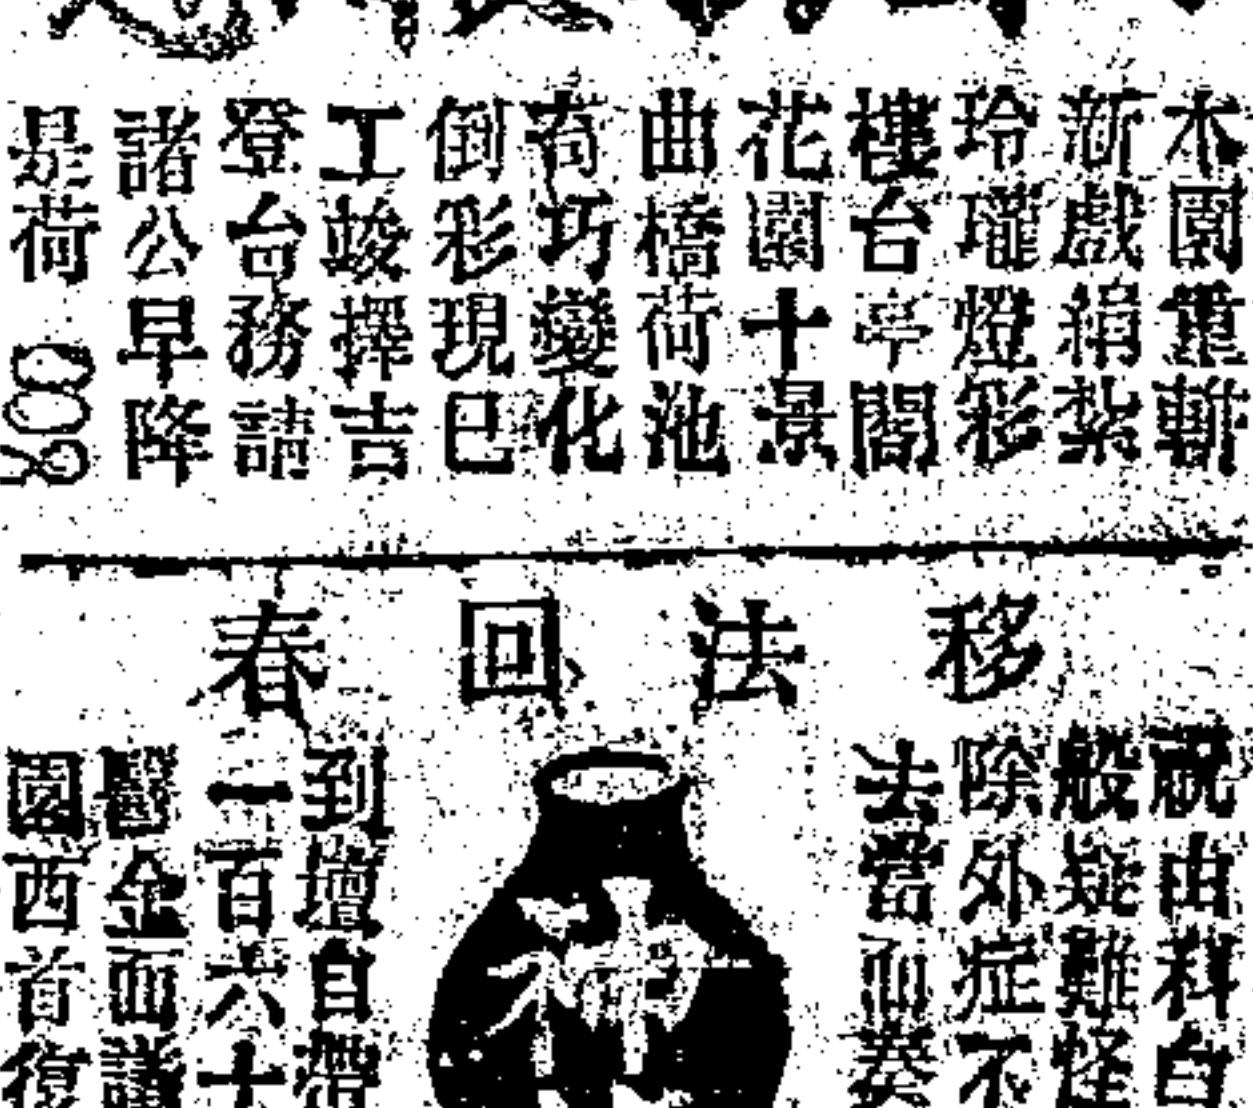 木園重斬
新戲絹紮
玲瓏燈彩
樓台亭閣
花園十景
曲橋荷池
奇巧變化
倒彩現已
工竣擇吉
登台務請
諸公早降
是荷
移法回春
祝由科白
般疑難怪
除外症不
去當面奏
神
到壇自帶
一百六十
醫金面議
園西首復